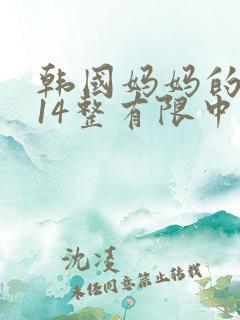 韩国妈妈的
14整有限中
沈凌
未经同意禁止转载